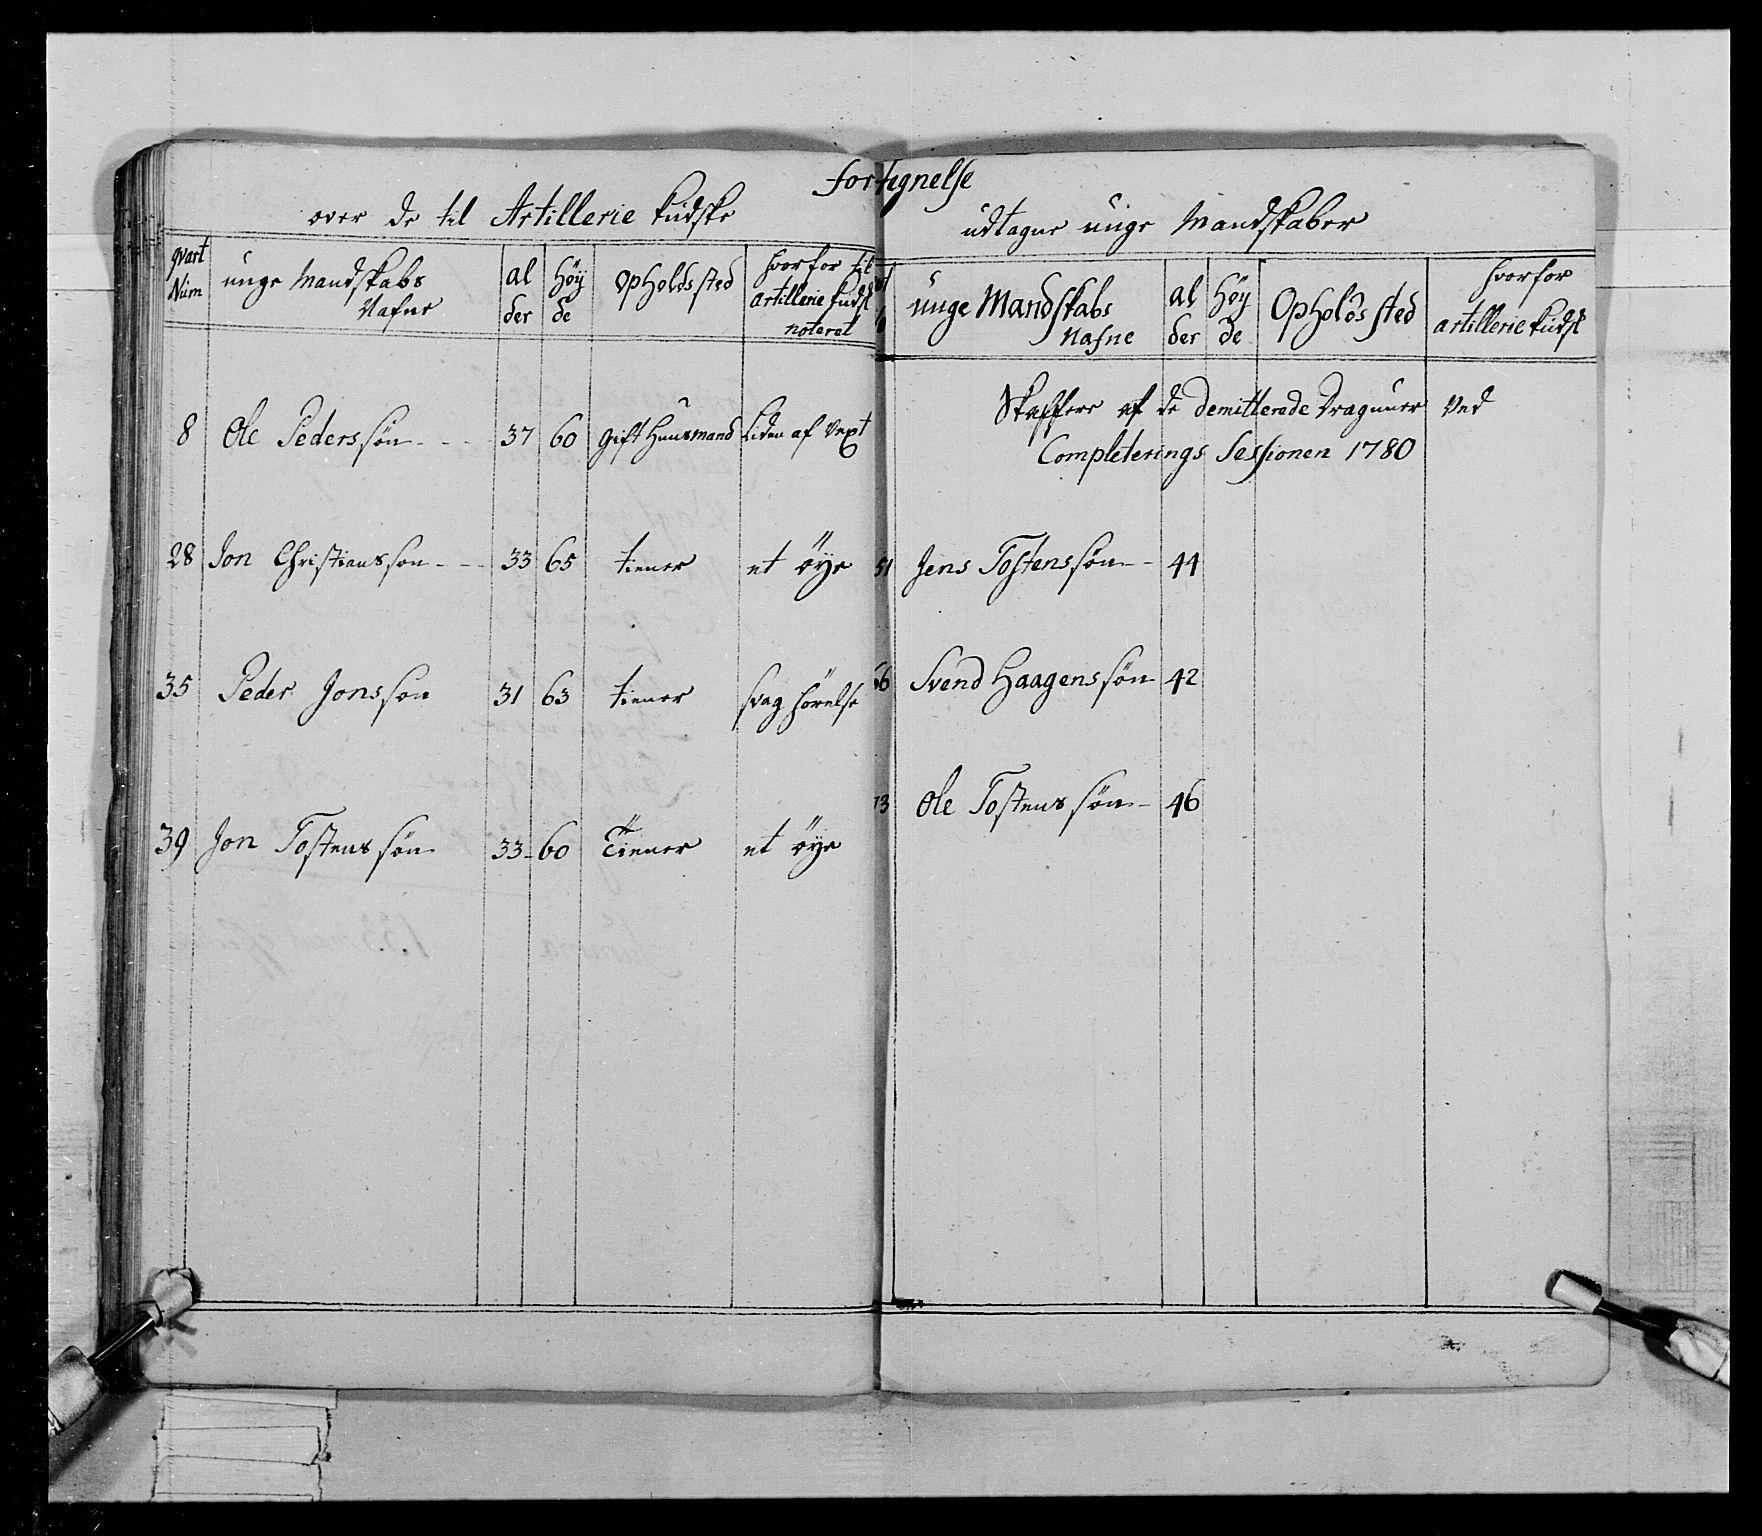 fortegnelse
over de til Artillerie kudske
udtagne unge Mandskaber
qvart Num
unge Mandskabs Nafne
al der
Høy de
opholds sted
hvorfor til artillerie kudsk noteret
8 Ole Pederssøn - - - 37 60 gift Huusmand Liden af Vext
28 Jon Christianssøn - - - 33 65 tiener et øye
35 Peder Jonssøn 31 63 tiener svag hørelse
39 Jon Tostenssøn 33 - 60 Tiener et øye
unge Mandskabs Nafne
al der
Høy de
Opholds sted
hvorfor artillerie kudsk
Skaffere af de demitterede Draguner Ved
Completerings Sessionen 1780
51 Jens Tostenssøn - - 44
66 Svend Haagenssøn 42
73 Ole Tostenssøn - 46